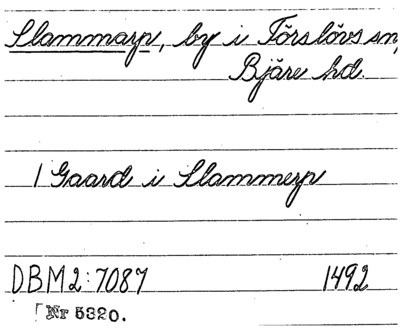 Slammarp, by i Förslövs sn,
Bjäre hd.
1 Gaard i Slammerp
DBM2:7087 1492
Nr 5320.